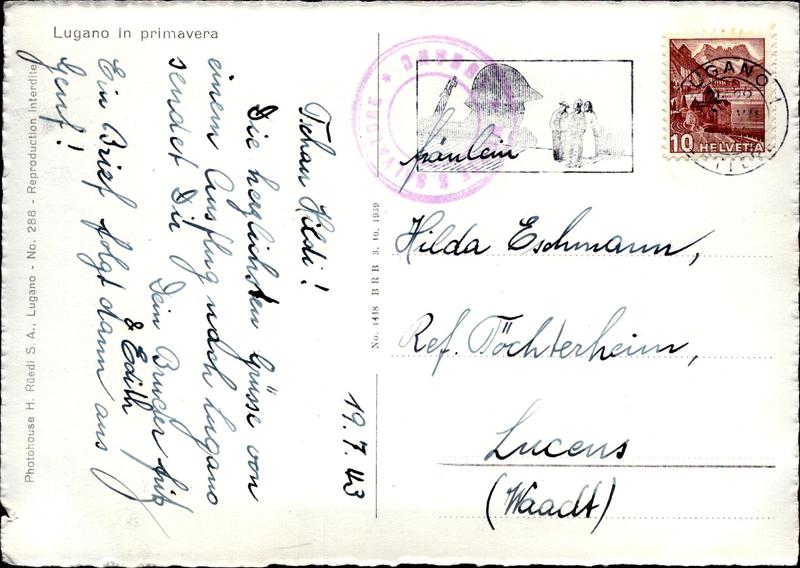 Lugano in primavera
19.7.43
Tschau Hildi!
Die herzlichsten Grüsse von
einem Ausflug nach Lugano
sendet Dir
Dein Bruder Fritz
& Edith
Ein Brief folgt dann aus
Genf!
Photohouse H. Rüedi S. A., Lugano - No. 288 - Reproduction Interdite
No. 1418 B R B 3. 10. 1939
LUGANO 1
LETTERE
10 HELVETIA
Fräulein
Hilda Eschmann,
Ref. Töchterheim,
Lucens
(Waadt)